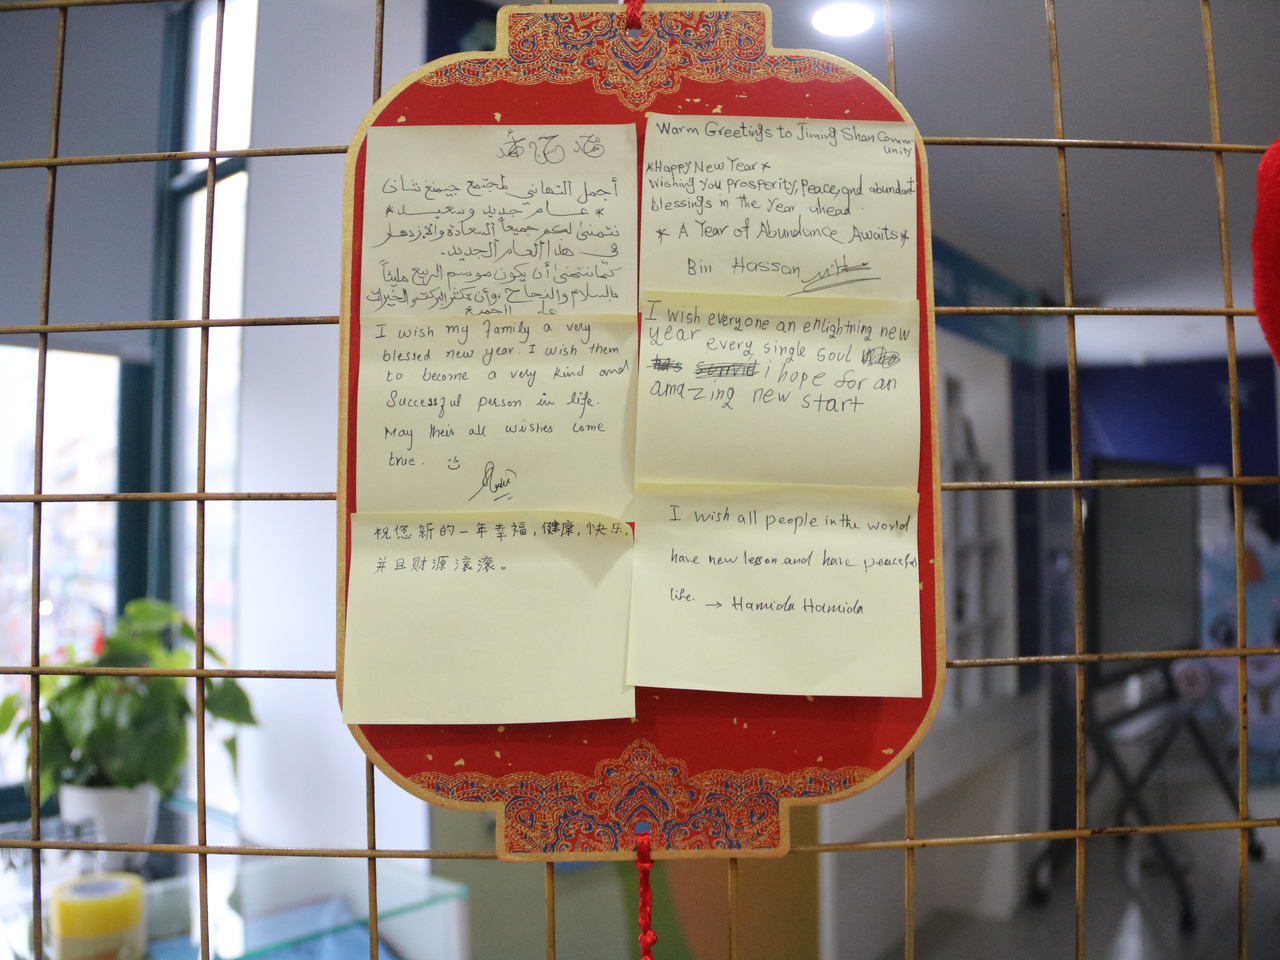 أجمل التهاني لمجتمع جيمنغ شان
* عام جديد وسعيد *
نتمنى لكم جميعاً السعادة والازدهار
في هذا العام الجديد.
كما نتمنى أن يكون موسم الربيع مليئاً
بالسلام والنجاح، وأن تكثر البركة والخيرات
على الجميع
Warm Greetings to Jiming Shan Comm-
unity
*Happy New Year*
Wishing you prosperity, Peace, and abundant
blessings in the Year ahead.
* A Year of Abundance Awaits*
Bin Hassan
I wish my family a very
blessed new year. I wish them
to become a very kind and
Successful person in life.
May their all wishes come
true.
I wish everyone an enlightning new
year every single soul
i hope for an
amazing new start
祝您新的一年幸福,健康,快乐,
并且财源滚滚。
I wish all people in the world
have new lesson and have peaceful
life. → Hamida Hamida